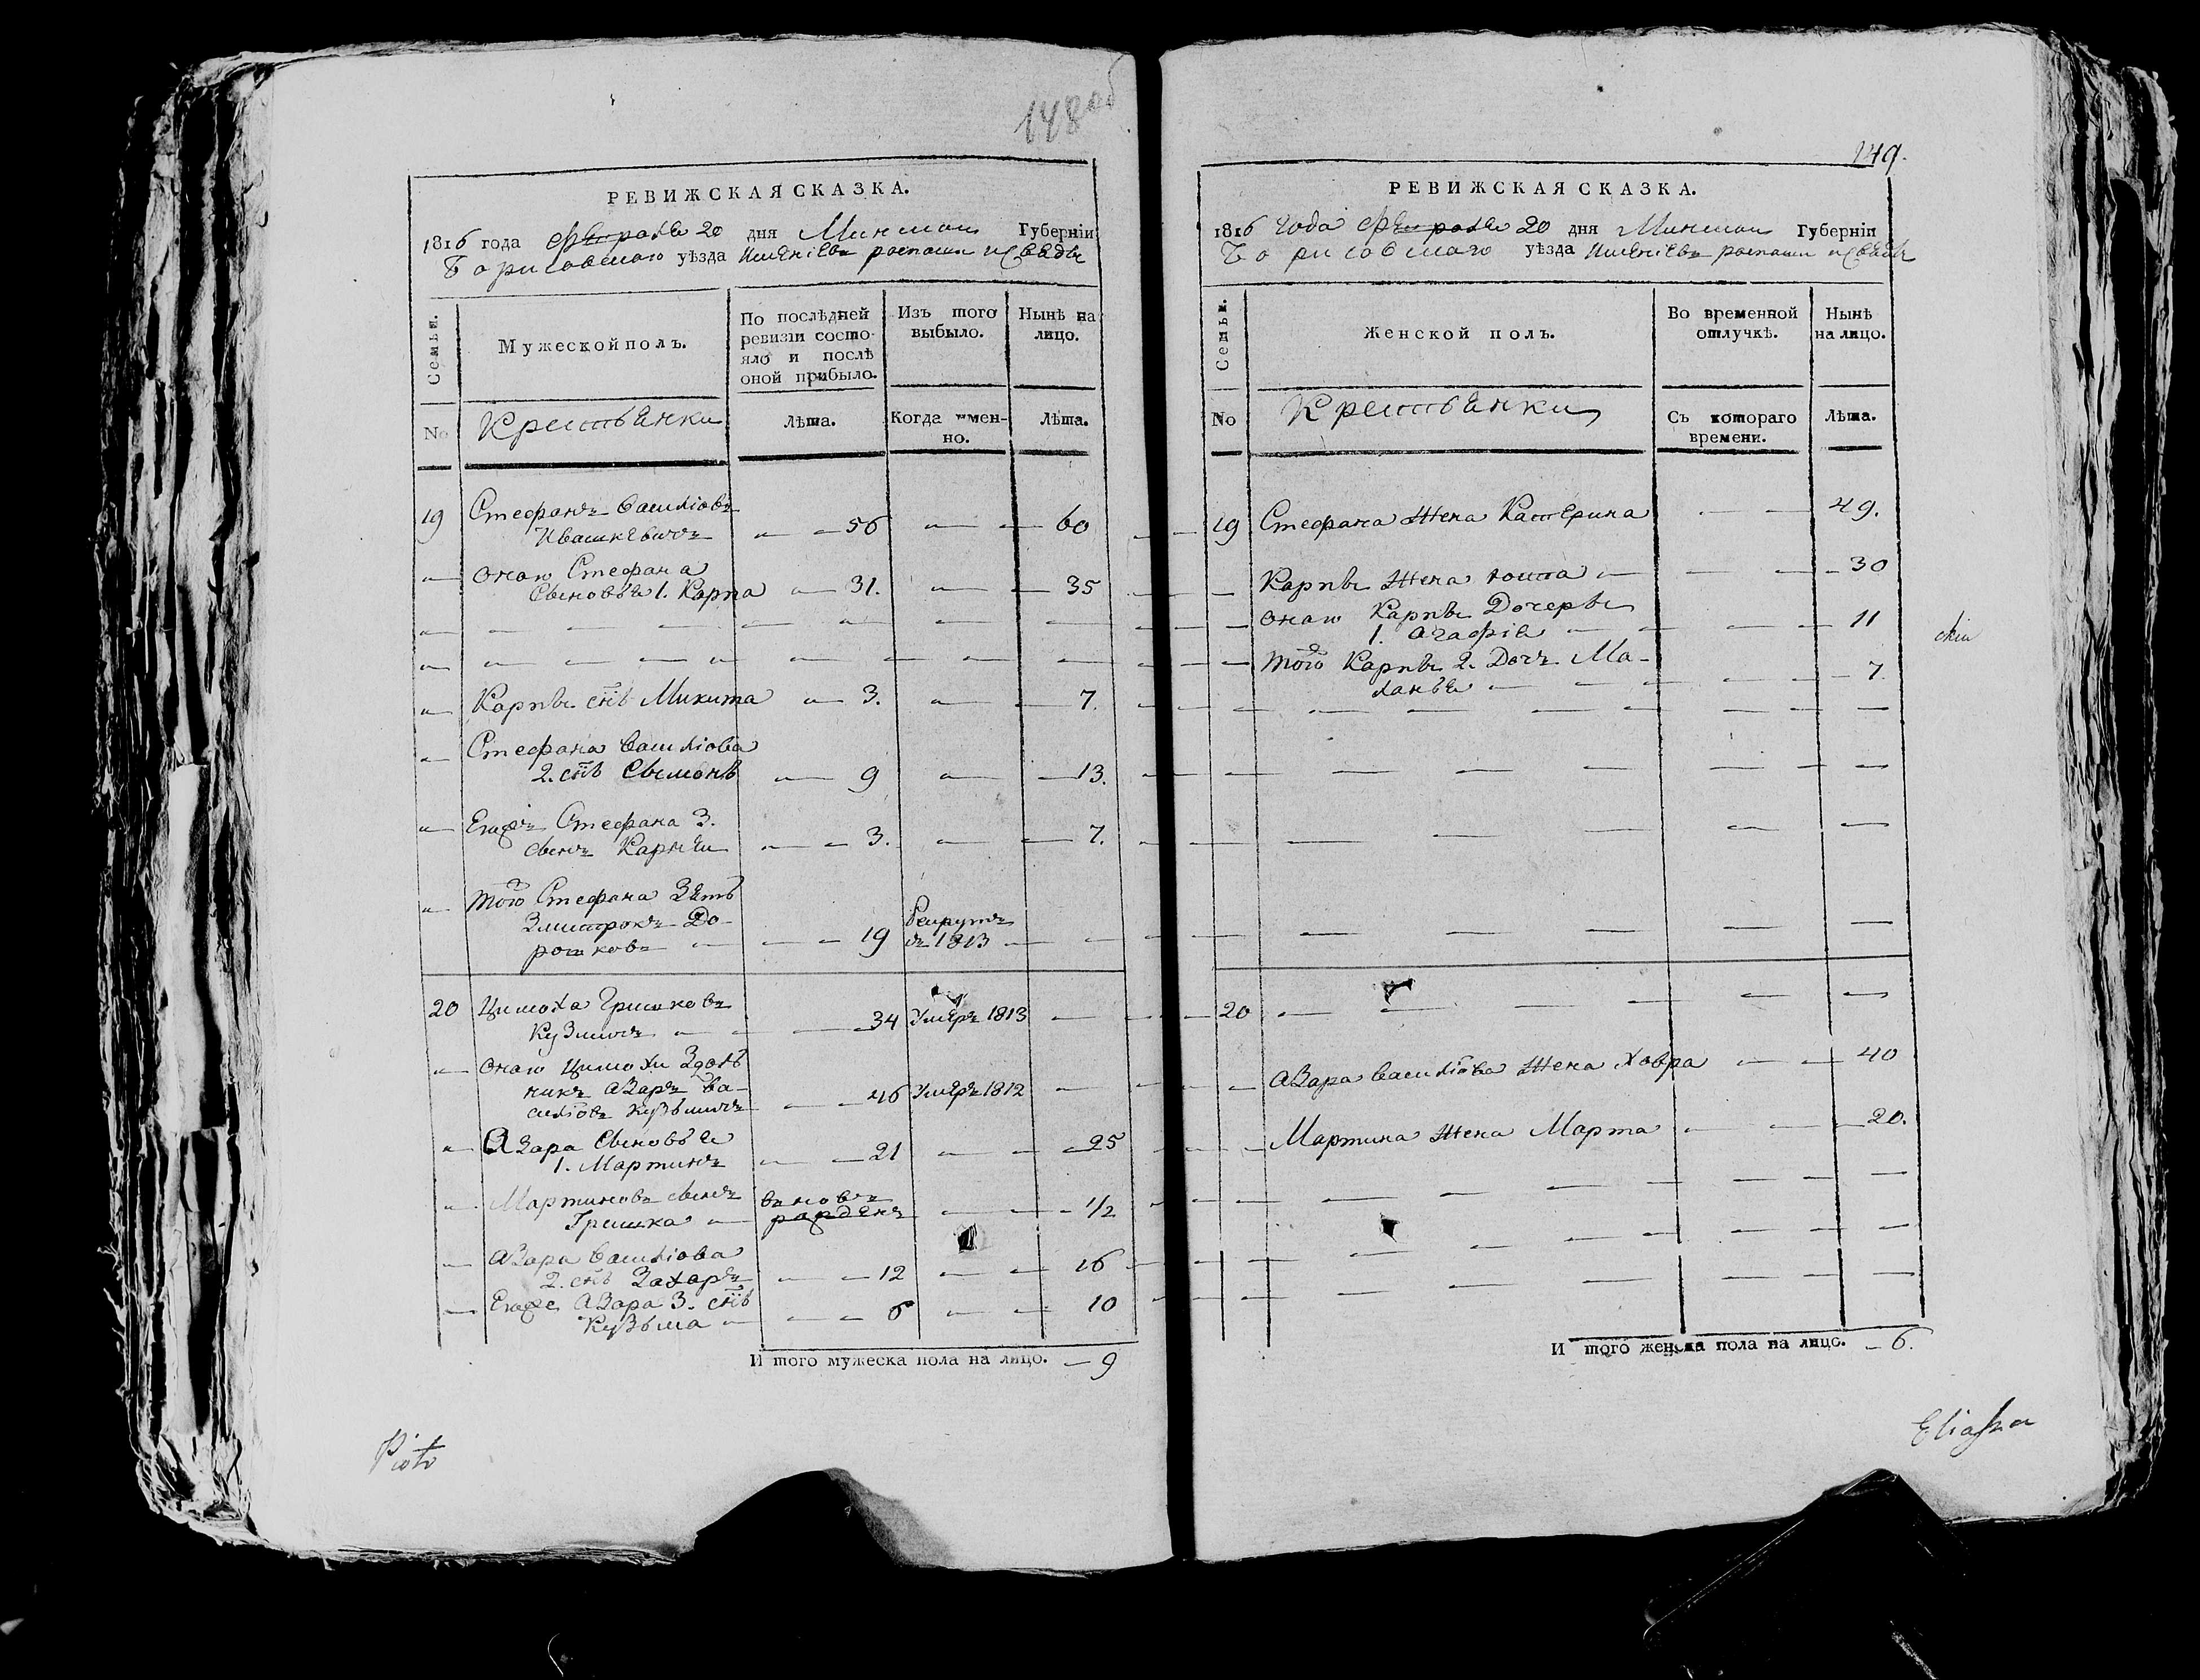 148 об
РЕВИЖСКАЯ СКАЗКА.
1816 года февраля 20 дня Минской Губерніи
Борисовскаго уѣзда
Семьи.
Мужеской полъ.
По послѣдней
ревизіи состо-
яло и послѣ
оной прибыло.
Изъ того
выбыло.
Нынѣ на
лицо.
No
Крестьянки
Лѣта.
Когда имен-
но.
Лѣта.
19 Стефанъ Василіовъ
Ивашкевичъ — 56 — 60
оного Стефана
Сыновья 1. Карпа — 31. — 35
Карпы снъ Микита — 3. — 7.
Стефана Василіова
2. снъ Сымонъ — 9 — 13.
Егожъ Стефана 3.
сынъ Карней — 3. — 7.
того Стефана Зять
Змитрокъ До-
рошковъ — 19
Рекрутъ
въ 1813
20 Цимоха Гришковъ
Кузмичъ — 34 Умеръ 1813
оного Цимохи Здоль
никъ Азаръ Ва-
силіовъ Кузьмичъ — 46 Умеръ 1812
Азара Сыновья
1. Мартинъ — 21 — 25
Мартиновъ сынъ
Гришка —
вновь
рожденъ — 1/2
Азара Василіова
2. снъ Захаръ — 12 — 16
Егоже Азара 3. снъ
Кузьма — 6 — 10
И того мужеска пола на лицо. — 9
Piotr
149.
РЕВИЖСКАЯ СКАЗКА.
1816 года февраля 20 дня Минской Губерніи
Борисовскаго уѣзда
Семьи.
Женской полъ.
Во временной
отлучкѣ.
Нынѣ
на лицо.
No
Крестьянки
Съ котораго
времени.
Лѣта.
19 Стефана Жена Катерина — 49.
Карпы Жена — 30
оного Карпы Дочеры
1. Агафія — 11
того Карпы 2. Дочь Ма-
ланья — 7.
20
Азара Василіова Жена Ховра — 40
Мартина Жена Марта — 20.
И того женска пола на лицо. — 6.
Eliasza